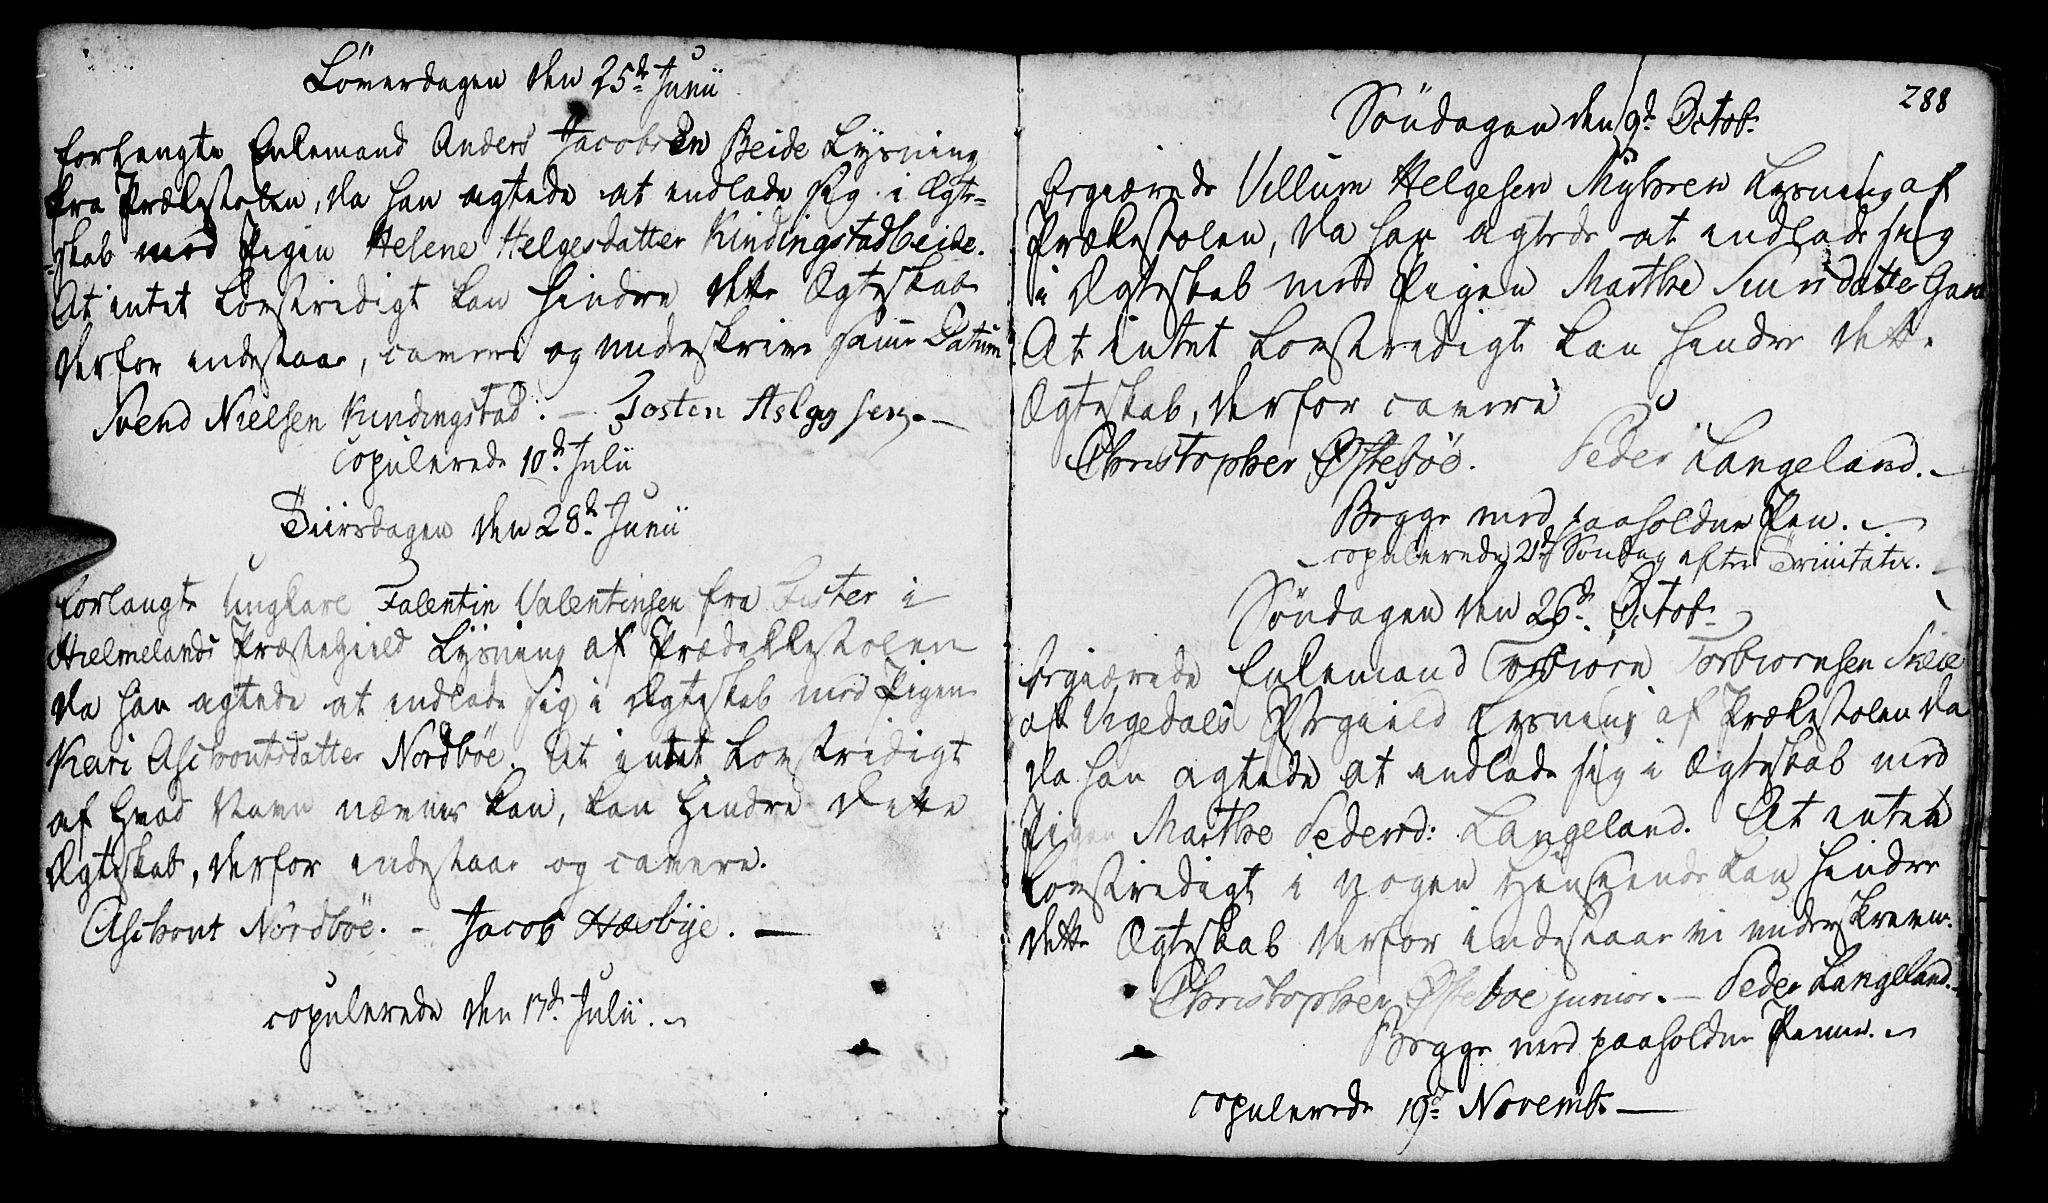 Löverdagen den 25d Junii
forlangte Enkemand Anders Jacobsen Beide Lysning
fra Prækestolen, da han agtede at indlade sig i Ægte-
-skab med Pigen Helene Helgesdatter Kindingstadbeide.
At intet Lovstridigt kan hindre dette Ægteskab
derfor indestaar, cavere og underskrive samme Datum
Svend Nielsen Kindingstad. - Tosten Aslagsen. -
copulerede 10d Julii
Tiirsdagen den 28d Junii
forlangte Ungkarl Falentin Valentinsen fra Fister i
Hielmelands Præstegield Lysning af Prædekkestolen
da han agtede at indlade sig i Ægteskab med Pigen
Kari Aschoutsdatter Nordböe. At intet Lovstridigt
af hvad Navn nævnes kan, kan hindre dette
Ægteskab, derfor indestaar og cavere.
Aschout Nordböe. - Jacob Hæsbÿe. -
copulerede den 17d Julii. -
288
Söndagen den 9d Octob:
begiærede Villum Helgesen Lysning af
Prækestolen, da han agtede at indlade sig
i Ægteskab med Pigen Marthe datter
At intet Lovstridigt kan hindre dette
Ægteskab, derfor cavere
Christopher Østeböe. Peder Langeland. -
Begge med paaholdne Pen. -
copulerede 21d Söndag efter Trinitatis. -
Söndagen den 26d Octob:
begiærede Enkemand Torbiorn Torbiornsen
af Vigedals Lysning af Prækestolen da
da han agtede at indlade sig i Ægteskab med
Pigen Marthe Pedersd: Langeland. At intet
Lovstridigt i nogen Henseende kan hindre
dette Ægteskab derfor indestaar vi underskrevne.
Christopher Østeboe junior. - Peder Langeland.
Begge med paaholdne Penne. -
copulerede 19d Novemb: -